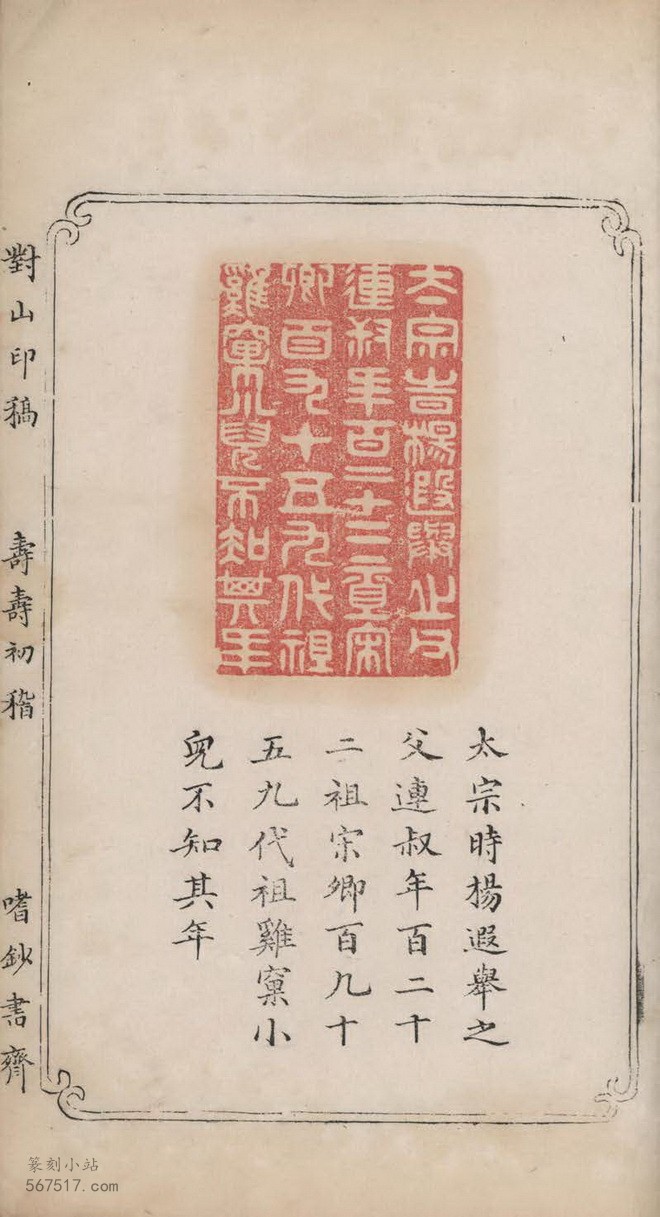 太宗旹楊遐舉之父
連叔年百二十二宋
卿百九十五九代祖
雞窠小兒不知其年
太宗時揚遐舉之
父連叔年百二十
二祖宋卿百九十
五九代祖雞窠小
兒不知其年
對山印稿 壽壽初稽 嗜鈔書齊
篆刻小站
567517.com